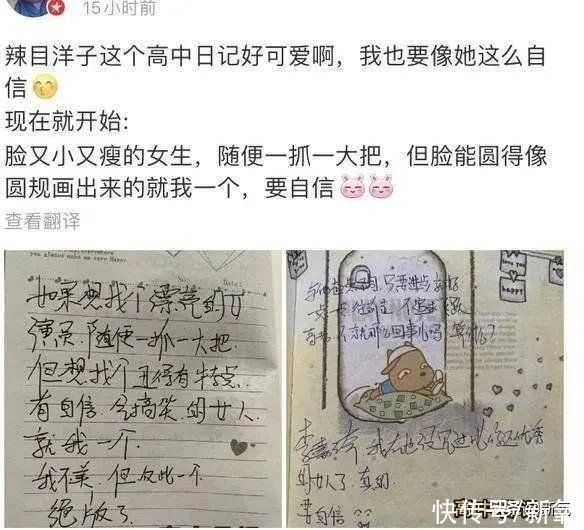 15小时前
辣目洋子这个高中日记好可爱啊，我也要像她这么自
信😙
现在就开始:
脸又小又瘦的女生，随便一抓一大把，但脸能圆得像
圆规画出来的就我一个，要自信
查看翻译
you always make me very Happy.
No.
Date
如果想找个漂亮的女
演员，随便一抓一大把
但想找个丑得有特点
有自信、会搞笑的女人
就我一个.
我不美，但仅此一个
绝版了.
love you
happy
只要进步就好
李嘉琦
我再也没见过比你还优秀
的女人了，真的.
要自信
快传号/新氧